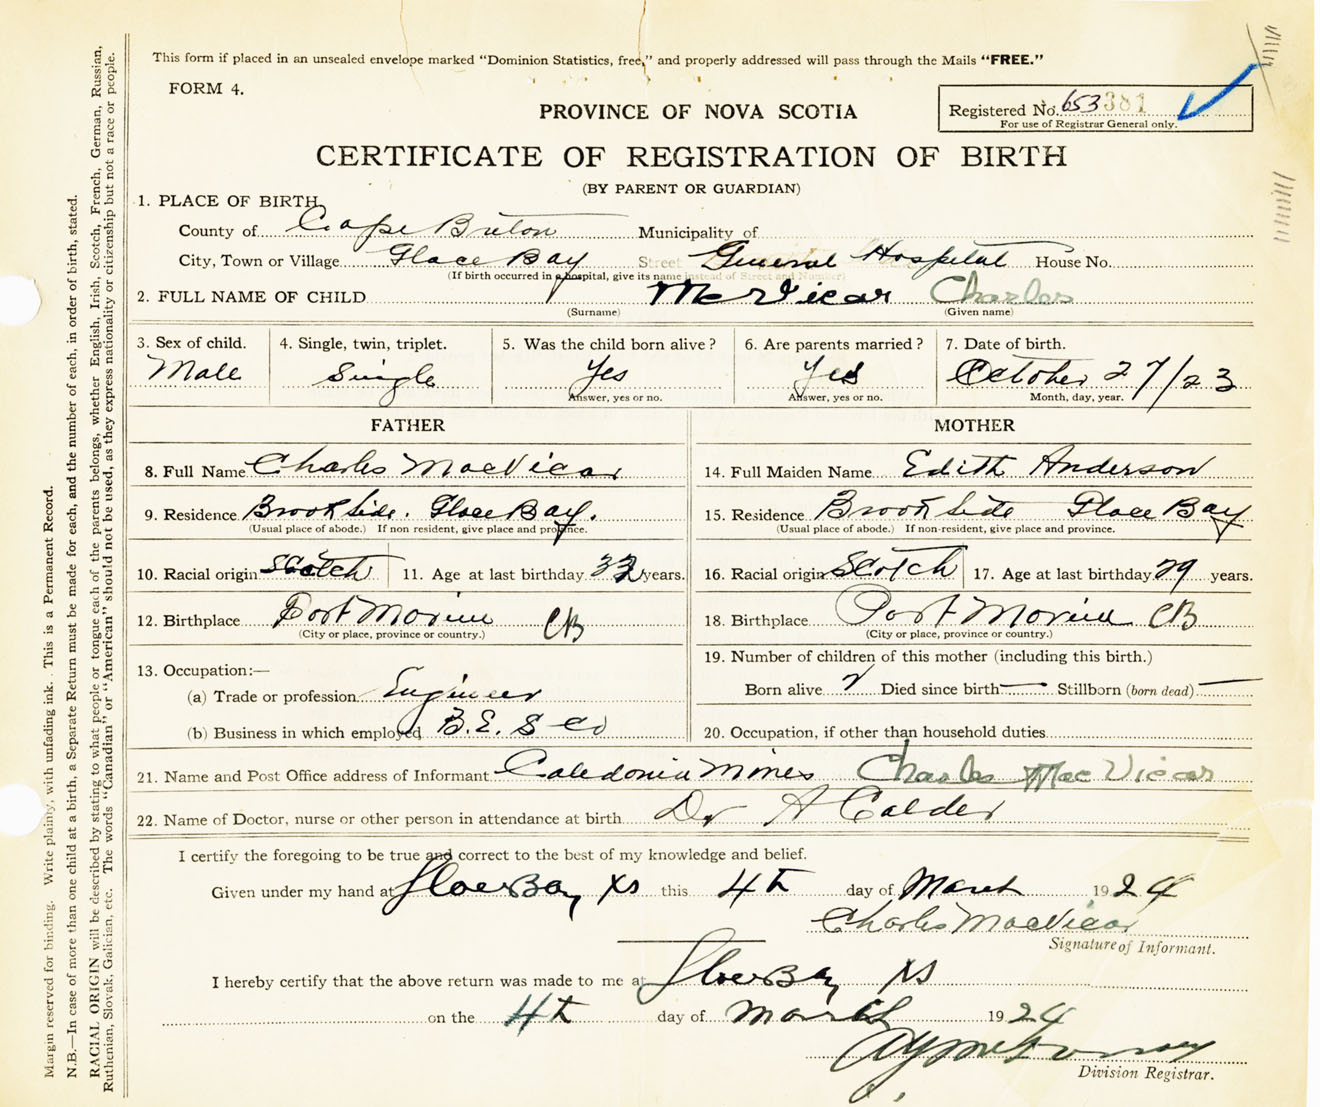 This form if placed in an unsealed envelope marked “Dominion Statistics, free,” and properly addressed will pass through the Mails “FREE.”
FORM 4.
PROVINCE OF NOVA SCOTIA
Registered No. 653381
For use of Registrar General only.
CERTIFICATE OF REGISTRATION OF BIRTH
(BY PARENT OR GUARDIAN)
1. PLACE OF BIRTH
County of Cape Breton Municipality of
City, Town or Village Glace Bay Street General Hospital House No.
(If birth occurred in a hospital, give its name instead of Street and Number)
2. FULL NAME OF CHILD McVicar Charles
(Surname) (Given name)
3. Sex of child. 4. Single, twin, triplet. 5. Was the child born alive? 6. Are parents married? 7. Date of birth.
Male Single Yes Yes October 27/23
Answer, yes or no. Answer, yes or no. Month, day, year.
FATHER MOTHER
8. Full Name Charles MacVicar 14. Full Maiden Name Edith Anderson
9. Residence Brookside. Glace Bay. 15. Residence Brookside Glace Bay
(Usual place of abode.) If non resident, give place and province. (Usual place of abode.) If non-resident, give place and province.
10. Racial origin Scotch 11. Age at last birthday 32 years. 16. Racial origin Scotch 17. Age at last birthday 29 years.
12. Birthplace Port Morien CB 18. Birthplace Port Morien CB
(City or place, province or country.) (City or place, province or country.)
13. Occupation:— 19. Number of children of this mother (including this birth.)
(a) Trade or profession Engineer Born alive 2 Died since birth — Stillborn (born dead) —
(b) Business in which employed B.E.S Co 20. Occupation, if other than household duties
21. Name and Post Office address of Informant Caledonia Mines Charles MacVicar
22. Name of Doctor, nurse or other person in attendance at birth Dr A Calder
I certify the foregoing to be true and correct to the best of my knowledge and belief.
Given under my hand at Glace Bay NS this 4th day of March 1924
Charles MacVicar
Signature of Informant.
I hereby certify that the above return was made to me at Glace Bay NS
on the 4th day of March 1924
Division Registrar.
Margin reserved for binding. Write plainly, with unfading ink. This is a Permanent Record.
N.B.—In case of more than one child at a birth, a Separate Return must be made for each, and the number of each, in order of birth, stated.
RACIAL ORIGIN will be described by stating to what people or tongue each of the parents belongs, whether English, Irish, Scotch, French, German, Russian,
Ruthenian, Slovak, Galician, etc. The words “Canadian” or “American” should not be used, as they express nationality or citizenship but not a race or people.